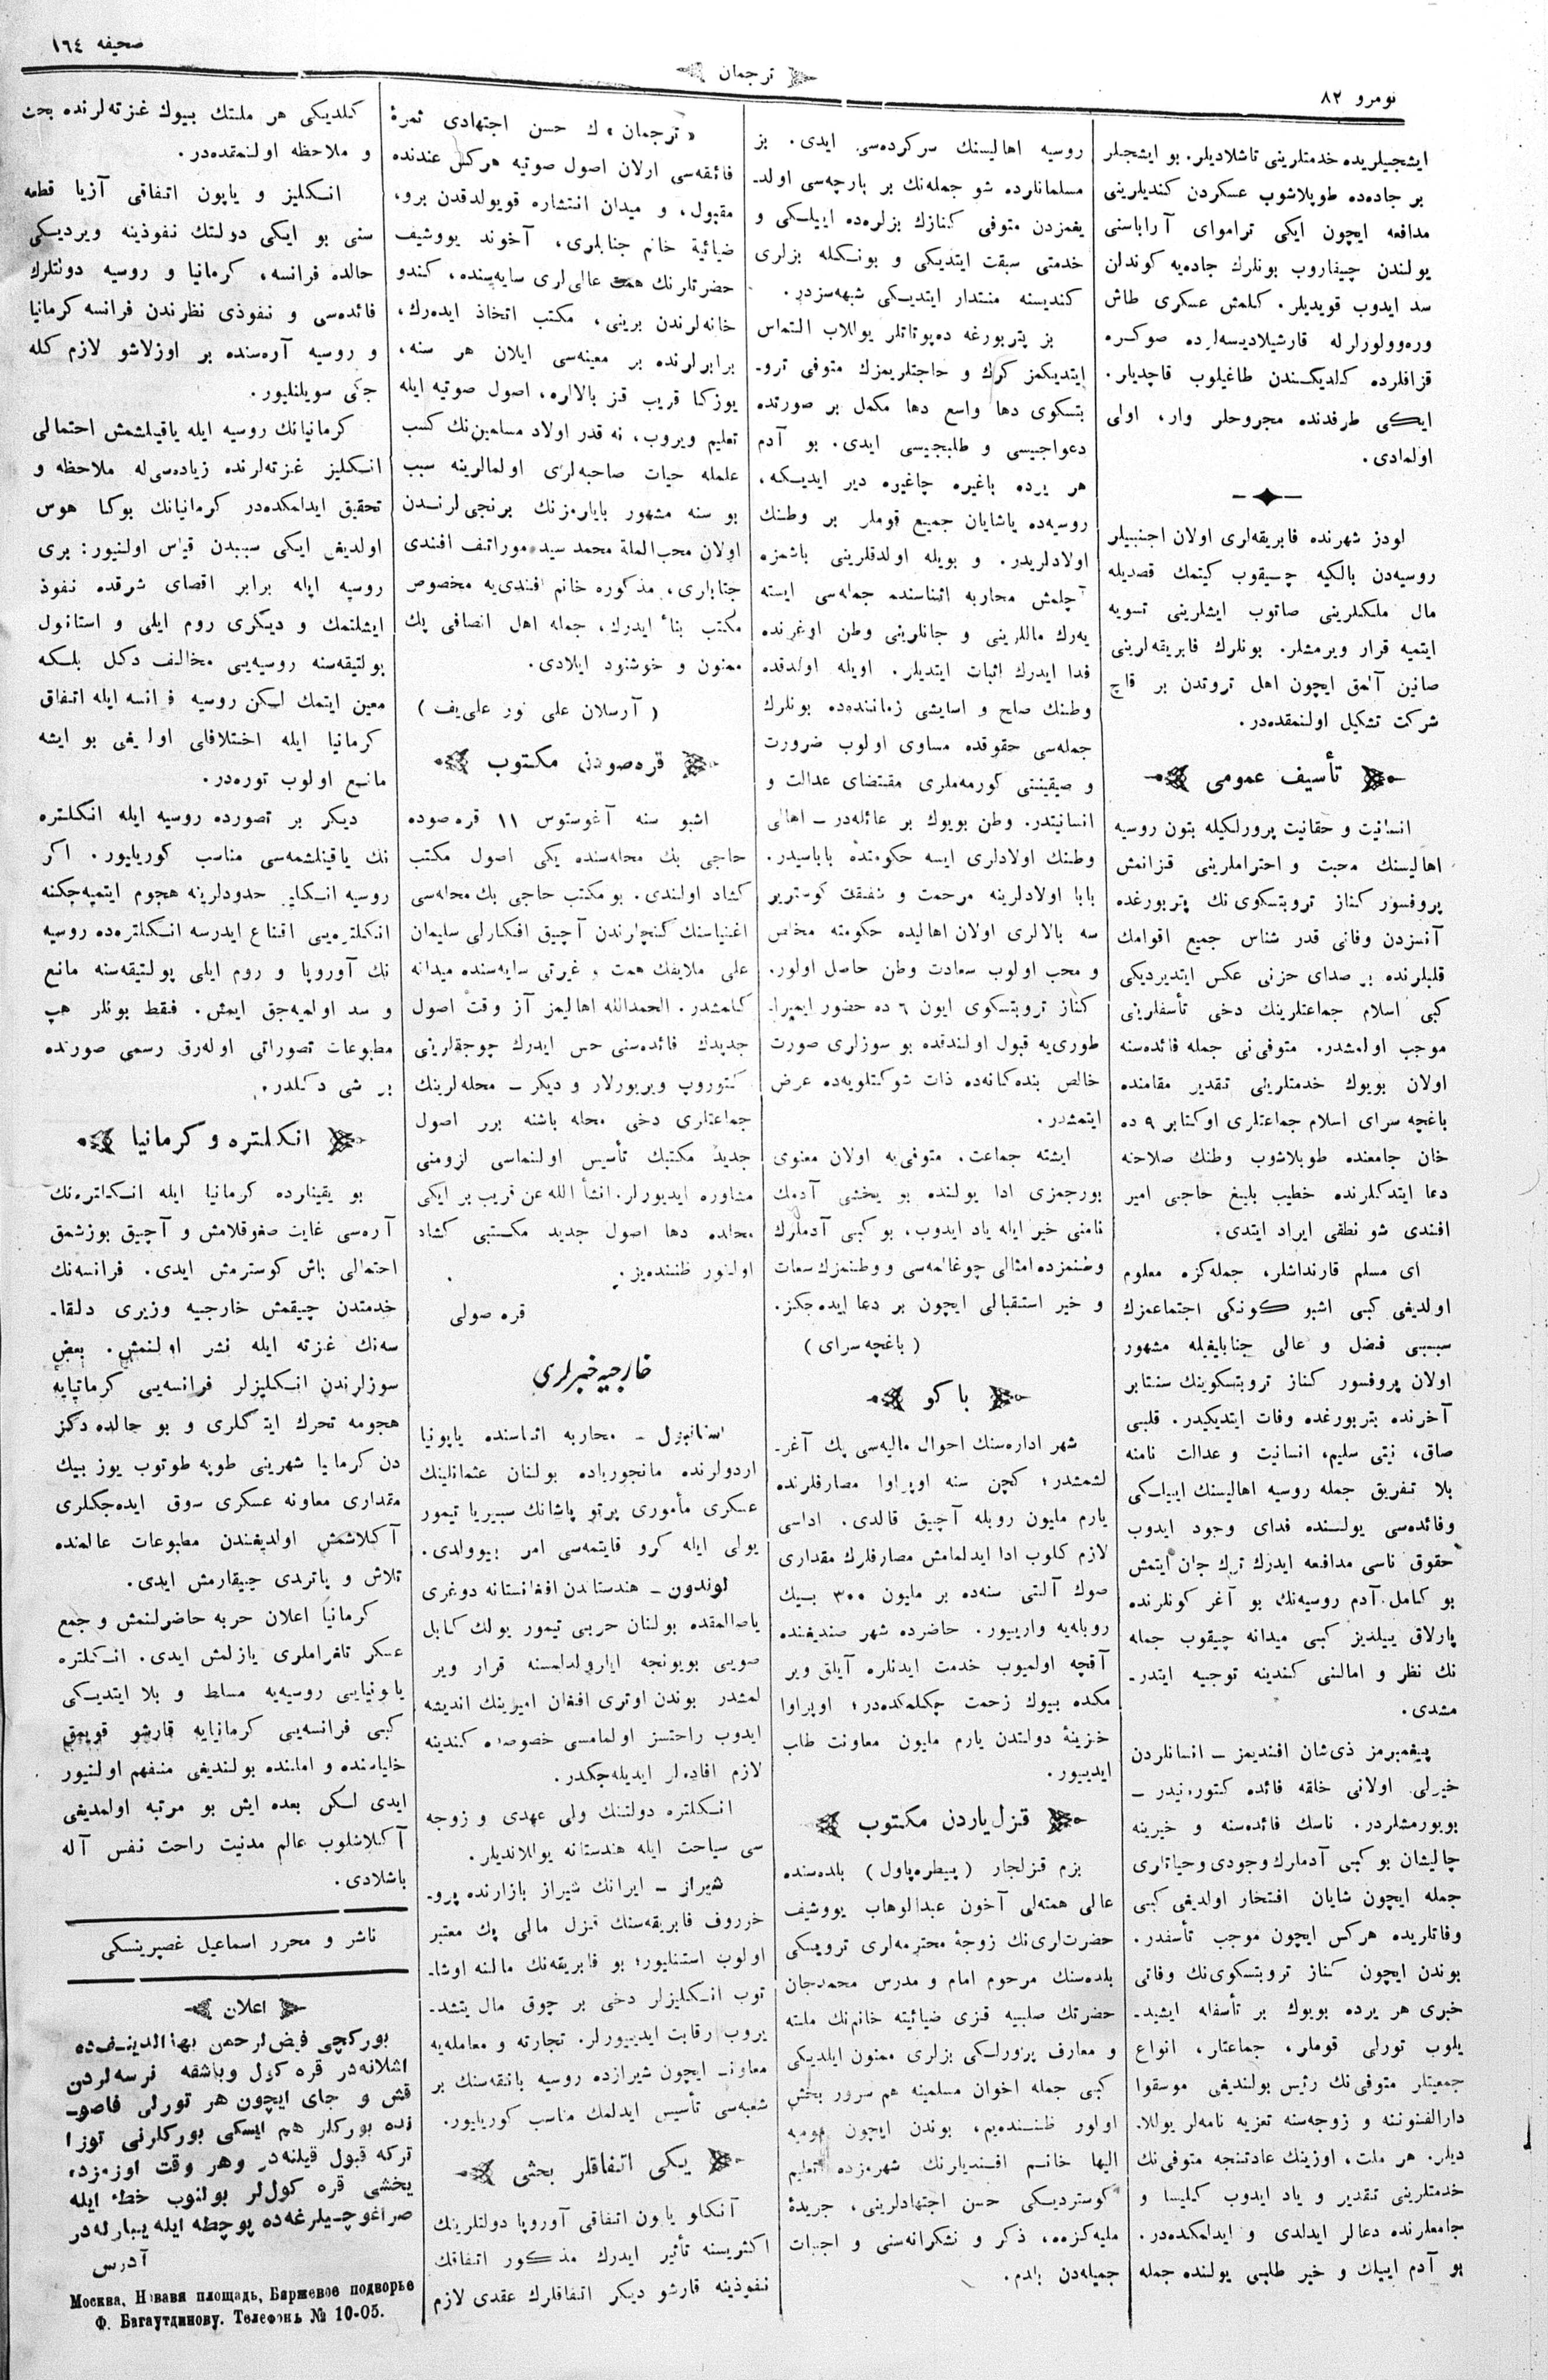 نومرو ٨٢
ترجمان
صحيفه ١٦٤
ايشجيلريده خدمتلرينى تاشلاديلر. بو ايشجيلر
بر جاده‌ده طوپلاشوب عسكردن كنديلرينى
مدافعه ايچون ايكى تراموای آراباسنى
يولندن چيقاروب بونلرك جاده‌يه كوندلن
سد ايدوب قويديلر. كلمش عسكرى طاش
وره‌وولورلرله قارشيلاديسه‌لرده صوكره
قزاقلرده كلديكندن طاغيلوب قاچديلر.
ايكى طرفدنده مجروحلر وار، اولى
اولمادى.
لودز شهرنده فابريقه‌لرى اولان اجنبيلر
روسيه‌دن بالكيه چيقوب كيتمك قصديله
مال ملكلرينى صاتوب ايشلرينى تسويه
ايتميه قرار ويرمشلر. بونلرك فابريقه‌لرينى
صاتين آلمق ايچون اهل ثروتدن بر قاچ
شركت تشكيل اولنمقده‌در.
تأسيف عمومى
انسانيت و حقانيت پرورلكيله بتون روسيه
اهاليسنك محبت و احتراملرينى قزانمش
پروفسور كناز تروبتسكوى نك پتربورغده
آنسزدن وفاتى قدر شناس جميع اقوامك
قلبلرنده بر صداى حزنى عكس ايتديرديكى
كبى اسلام جماعتلرينك دخى تأسفلرينى
موجب اولمشدر. متوفى‌نى جمله فائده‌سنه
اولان بويوك خدمتلرينى تقدير مقامنده
باغچه سراى اسلام جماعتلرى اوكتابر ٩ ده
خان جامعنده طوپلاشوب وطنك صلاحنه
دعا ايتدكلرنده خطيب بليغ حاجى امير
افندى شو نطقى ايراد ايتدى.
اى مسلم قارنداشلر، جمله‌كزه معلوم
اولديغى كبى اشبو كونكى اجتماعمزك
سببى فضل و عالى جنابليغيله مشهور
اولان پروفسور كناز تروبتسكوينك سنتابر
آخرنده پتربورغده وفات ايتديكيدر. قلبى
صاف، نيتى سليم، انسانيت و عدالت نامنه
بلا تفريق جمله روسيه اهاليسنك ايپلكى
وفائده‌سى يولنده فداى وجود ايدوب
حقوق ناسى مدافعه ايدرك ترك جان ايتمش
بو كامل آدم روسيه‌نك بو آغر كونلرنده
پارلاق ييلديز كبى ميدانه چيقوب جمله
نك نظر و امالنى كندينه توجيه ايتدر-
مشدى.
پيغمبرمز ذى‌شان افنديمز ــ انسانلردن
خيرلى اولانى خلقه فائده كتورنيدر ــ
بويورمشلردر. ناسك فائده‌سنه و خيرينه
چاليشان بو كبى آدملرك وجودى وحياتلرى
جمله ايچون شايان افتخار اولديغى كبى
وفاتلريده هركس ايچون موجب تأسفدر.
بوندن ايچون كناز تروبتسكوى‌نك وفاتى
خبرى هر يرده بويوك بر تأسفله ايشيد-
يلوب تورلى قوملر، جماعتلر، انواع
جمعيتلر متوفى‌نك رئيس بولنديغى موسقوا
دارالفنوننه و زوجه‌سنه تعزيه نامه‌لر يوللا-
ديلر. هر ملت، اوزينك عادتنجه متوفى‌نك
خدمتلرينى تقدير و ياد ايدوب كليسا و
جامعلرنده دعالر ايدلدى و ايدلمكده‌در.
بو آدم ايپلك و خير طلبى يولنده جمله
روسيه اهاليسنك سركرده‌سى ايدى. بز
مسلمانلرده شو جمله‌نك بر پارچه‌سى اولد-
يغمزدن متوفى كنازك بزلره‌ده ايپلكى و
خدمتى سبقت ايتديكى و بونكله بزلرى
كنديسنه منتدار ايتديكى شبهه‌سزدر.
بز پتربورغه ده‌پوتاتلر يوللاب التماس
ايتديكمز كرك و حاجتلريمزك متوفى ترو-
بتسكوى دها واسع دها مكمل بر صورتده
دعواجيسى و طلبجيسى ايدى. بو آدم
هر يرده باغيره چاغيره دير ايديكه،
روسيه‌ده ياشايان جميع قوملر بر وطنك
اولادلريدر. و بويله اولدقلرينى باشمزه
آچلمش محاربه اثناسنده جمله‌سى ايسته
يه‌رك ماللرينى و جانلرينى وطن اوغرنده
فدا ايدرك اثبات ايتديلر. اويله اولدقده
وطنك صلح و اسايشى زماننده‌ده بونلرك
جمله‌سى حقوقده مساوى اولوب ضرورت
و صيقينتى كورمه‌ملرى مقتضاى عدالت و
انسانيتدر. وطن بويوك بر عائله‌در ــ اهالى
وطنك اولادلرى ايسه حكومتده باباسيدر.
بابا اولادلرينه مرحمت و شفقت كوستيرير
سه بالالرى اولان اهاليده حكومته مخلص
و محب اولوب سعادت وطن حاصل اولور.
كناز تروبتسكوى ايون ٦ ده حضور ايمپرا-
طورى‌يه قبول اولندقده بو سوزلرى صورت
خالص بنده‌كانه‌ده ذات شوكتلويه‌ده عرض
ايتمشدر.
ايشته جماعت. متوفى‌يه اولان معنوى
بورجمزى ادا يولنده بو يخشى آدمك
نامنى خير ايله ياد ايدوب، بو كبى آدملرك
وطنمزده امثالى چوغالمه‌سى و وطنمزك سعات
و خير استقبالى ايچون بر دعا ايده‌جكز.
( باغچه سراى )
باكو
شهر اداره‌سنك احوال ماليه‌سى پك آغر-
لشمشدر؛ كچن سنه اوپراوا مصارفلرنده
يارم مليون روبله آچيق قالدى. اداسى
لازم كلوب ادا ايدلمامش مصارفلرك مقدارى
صوك آلتى سنه‌ده بر مليون ٣٠٠ بيك
روبله‌يه وارييور. حاضرده شهر صنديغنده
آقچه اولميوب خدمت ايدنلره آيلق وير
مكده بيوك زحمت چكلمكده‌در؛ اوپراوا
خزينۀ دولتدن يارم مليون معاونت طلب
ايدييور.
قزل‌ياردن مكتوب
بزم قزلجار ( پيطره‌پاول ) بلده‌سنده
عالى همتلى آخون عبدالوهاب يووشيف
حضرت‌لرى‌نك زوجۀ محترمه‌لرى ترويسكى
بلده‌سنك مرحوم امام و مدرس محمدجان
حضرتك صلبيه قزى ضيائيته خانم‌نك ملته
و معارف پرورلكى بزلرى ممنون ايلديكى
كبى جمله اخوان مسلمينه هم سرور بخش
اولور ظننده‌يم، بوندن ايچون موميه
اليها خانم افنديلرنك شهرمزده تعليم
كوسترديكى حسن اجتهادلرينى، جريدۀ
مليه‌كزه، ذكر و تشكرانه‌سنى و اجبات
جميله‌دن بلدم.
«ترجمان» ك حسن اجتهادى ثمرۀ
فائقه‌سى اولان اصول صوتيه هركس عندنده
مقبول، و ميدان انتشاره قويولدقدن برو،
ضيائية خانم جنابلرى، آخوند يووشيف
حضرتلرنك همت عالى‌لرى سايه‌سنده، كندو
خانه‌لرندن برينى، مكتب اتخاذ ايده‌رك،
برابرلرنده بر معينه‌سى ايلان هر سنه،
يوزكا قريب قز بالالره، اصول صوتيه ايله
تعليم ويروب، نه قدر اولاد مسلمين‌نك كسب
علمله حيات صاحبه‌لرى اولمالرينه سبب
بو سنه مشهور بايلرمزنك برنجى‌لرندن
اولان محب‌الملة محمد سيد موراتف افندى
جنابلرى، مذكوره خانم افندى‌يه مخصوص
مكتب بناء ايدرك، جمله اهل انصافى پك
ممنون و خوشنود ايلادى.
( آرسلان على نور على‌يف )
قره‌صودن مكتوب
اشبو سنه آغوستوس ١١ قره‌صوده
حاجى بك محله‌سنده يكى اصول مكتب
كشاد اولندى. بو مكتب حاجى بك محله‌سى
اغنياسنك كنچلرندن آچيق افكارلى سليمان
على ملايفك همت و غيرتى سايه‌سنده ميدانه
كلمشدر. الحمدالله اهاليمز آز وقت اصول
جديدك فائده‌سنى حس ايدرك چوجقلرينى
كتوروپ ويريورلار و ديكر ــ محله‌لرينك
جماعتلرى دخى محله باشنه برر اصول
جديد مكتبك تأسيس اولنماسى لزومنى
مشاوره ايديورلر. انشأ الله عن قريب بر ايكى
محلده دها اصول جديد مكتبى كشاد
اولنور ظننده‌يز.
قره صولى
خارجيه خبرلرى
استانبول ــ محاربه اثناسنده ياپونيا
اردولرنده مانجورياده بولنان عثمانلينك
عسكرى مأمورى پرتو پاشانك سيبيريا تيمور
يولى ايله كرو قايتمه‌سى امر بيوولدى.
لوندون ــ هندستاندن افغانستانه دوغرى
ياصالمقده بولنان حربى تيمور يولك كابل
صويى بويونجه ايلرولدلمسنه قرار وير
لمشدر بوندن اوترى افغان اميرينك انديشه
ايدوب راحتسز اولمامسى خصوصده كندينه
لازم افاده‌لر ايديله‌جكدر.
انكلتره دولتنك ولى عهدى و زوجه
سى سياحت ايله هندستانه يوللانديلر.
شيراز ــ ايرانك شيراز بازارنده پرو-
خرروف فابريقه‌سنك قزل مالى پك معتبر
اولوب استنليور؛ بو فابريقه‌نك مالنه اوشا-
توب انكليزلر دخى بر چوق مال يتشد-
يروب رقابت ايدييورلر. تجارته و معامله‌يه
معاونت ايچون شيرازده روسيه بانقه‌سنك بر
شعبه‌سى تأسيس ايدلمك مناسب كوريليور.
يكى اتفاقلر بحثى
آنكلو ياپون اتفاقى آوروپا دولتلرينك
اكثريسنه تأثير ايدرك مذكور اتفاقك
نفوذينه قارشو ديكر اتفاقلرك عقدى لازم
كلديكى هر ملتك بيوك غزته‌لرنده بحث
و ملاحظه اولنمقده‌در.
انكليز و ياپون اتفاقى آزيا قطعه
سنى بو ايكى دولتك نفوذينه ويرديكى
حالده فرانسه، كرمانيا و روسيه دولتلرك
فائده‌سى و نفوذى نظرندن فرانسه كرمانيا
و روسيه آره‌سنده بر اوزلاشو لازم كله
جكى سويلنليور.
كرمانيانك روسيه ايله ياقيلشمش احتمالى
انكليز غزته‌لرنده زياده‌سى‌له ملاحظه و
تحقيق ايدلمكده‌در كرمانيانك بوكا هوس
اولديغى ايكى سببدن قياس اولنيور: برى
روسيه ايله برابر اقصاى شرقده نفوذ
ايشلتمك و ديكرى روم ايلى و استانبول
پولتيقه‌سنه روسيه‌يى مخالف دكل بلكه
معين ايتمك ليكن روسيه فرانسه ايله اتفاق
كرمانيا ايله اختلافلى اوليغى بو ايشه
مانع اولوب توره‌در.
ديكر بر تصورده روسيه ايله انكلتره
نك ياقينلشمه‌سى مناسب كوريليور. اكر
روسيه انكليز حدودلرينه هجوم ايتميه‌جكنه
انكلتره‌يى اقناع ايدرسه انكلتره‌ده روسيه
نك آوروپا و روم ايلى پولتيقه‌سنه مانع
و سد اولميه‌جق ايمش. فقط بونلر هپ
مطبوعات تصوراتى اوله‌رق رسمى صورتده
بر شى دكلدر.
انكلتره و كرمانيا
بو يقينلرده كرمانيا ايله انكلتره‌نك
آره‌سى غايت صغوقلامش و آچيق بوزشمق
احتمالى باش كوسترمش ايدى. فرانسه‌نك
خدمتدن چيقمش خارجيه وزيرى دلقا-
سه‌نك غزته ايله نشر اولنمش. بعض
سوزلرندن انكليزلر فرانسه‌يى كرمانيايه
هجومه تحرك ايتدكلرى و بو حالده دكز
دن كرمانيا شهرينى طوپه طوتوب يوز بيك
مقدارى معاونه عسكرى سوق ايده‌جكلرى
آكلاشمش اولديغندن مطبوعات عالمنده
تلاش و ياتردى چيقارمش ايدى.
كرمانيا اعلان حربه حاضرلنمش و جمع
عسكر تلغراملرى يازلمش ايدى. انكلتره
ياپونيايى روسيه‌يه مسلط و بلا ايتديكى
كبى فرانسه‌يى كرمانيايه قارشو قويمق
خلياسنده و املنده بولنديغى منفهم اولنيور
ايدى لكن بعده ايش بو مرتبه اولمديغى
آكلاشلوب عالم مدنيت راحت نفس آله
باشلادى.
ناشر و محرر اسماعيل غصپرينسكى
اعلان
بوركچى فيض‌لرحمن بهاالدينـف‌ده
اشلانه‌در قره كول وباشقه نرسه‌لردن
قش و جاى ايچون هر تورلى فاصو-
نده بوركلر هم ايسكى بوركلرنى توزا
تركه قبول قيلنه‌در وهر وقت اوزمزده
يخشى قره كوللر بولنوب خطء ايله
صراغوچـيلرغه‌ده پوچطه ايله ييبارله‌در
آدرس
Москва, Новая площадь, Биржевое подворье
Ф. Багаутдинову. Телефонъ № 10-05.